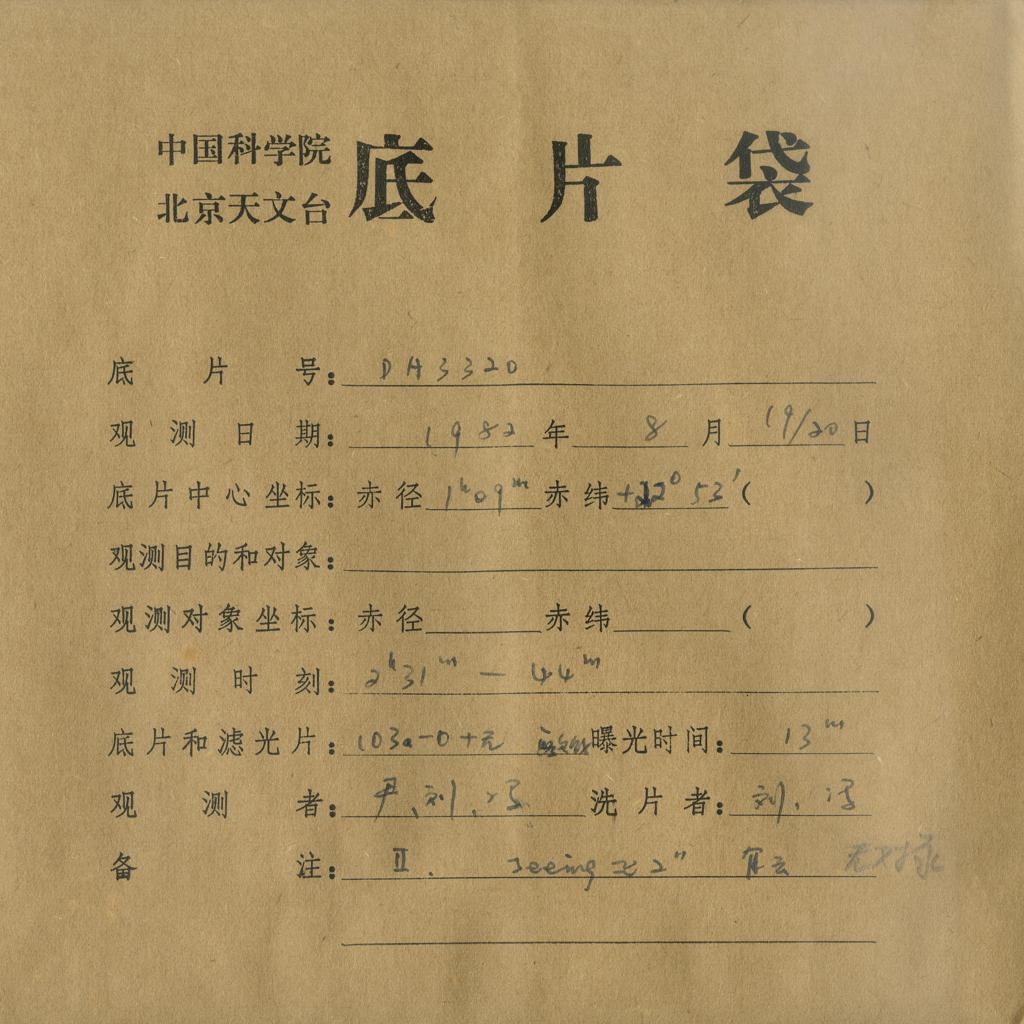 中国科学院
北京天文台 底片袋
底片号： DA3320
观测日期： 1982 年 8 月 19/20 日
底片中心坐标： 赤径 1ʰ09ᵐ 赤纬 +22° 53′ ( )
观测目的和对象：
观测对象坐标： 赤径 赤纬 ( )
观测时刻： 2ʰ31ᵐ — 44ᵐ
底片和滤光片： 103a-O+无 曝光时间： 13ᵐ
观测者： 尹、刘、冯 洗片者： 刘、冯
备注： II. seeing 2″